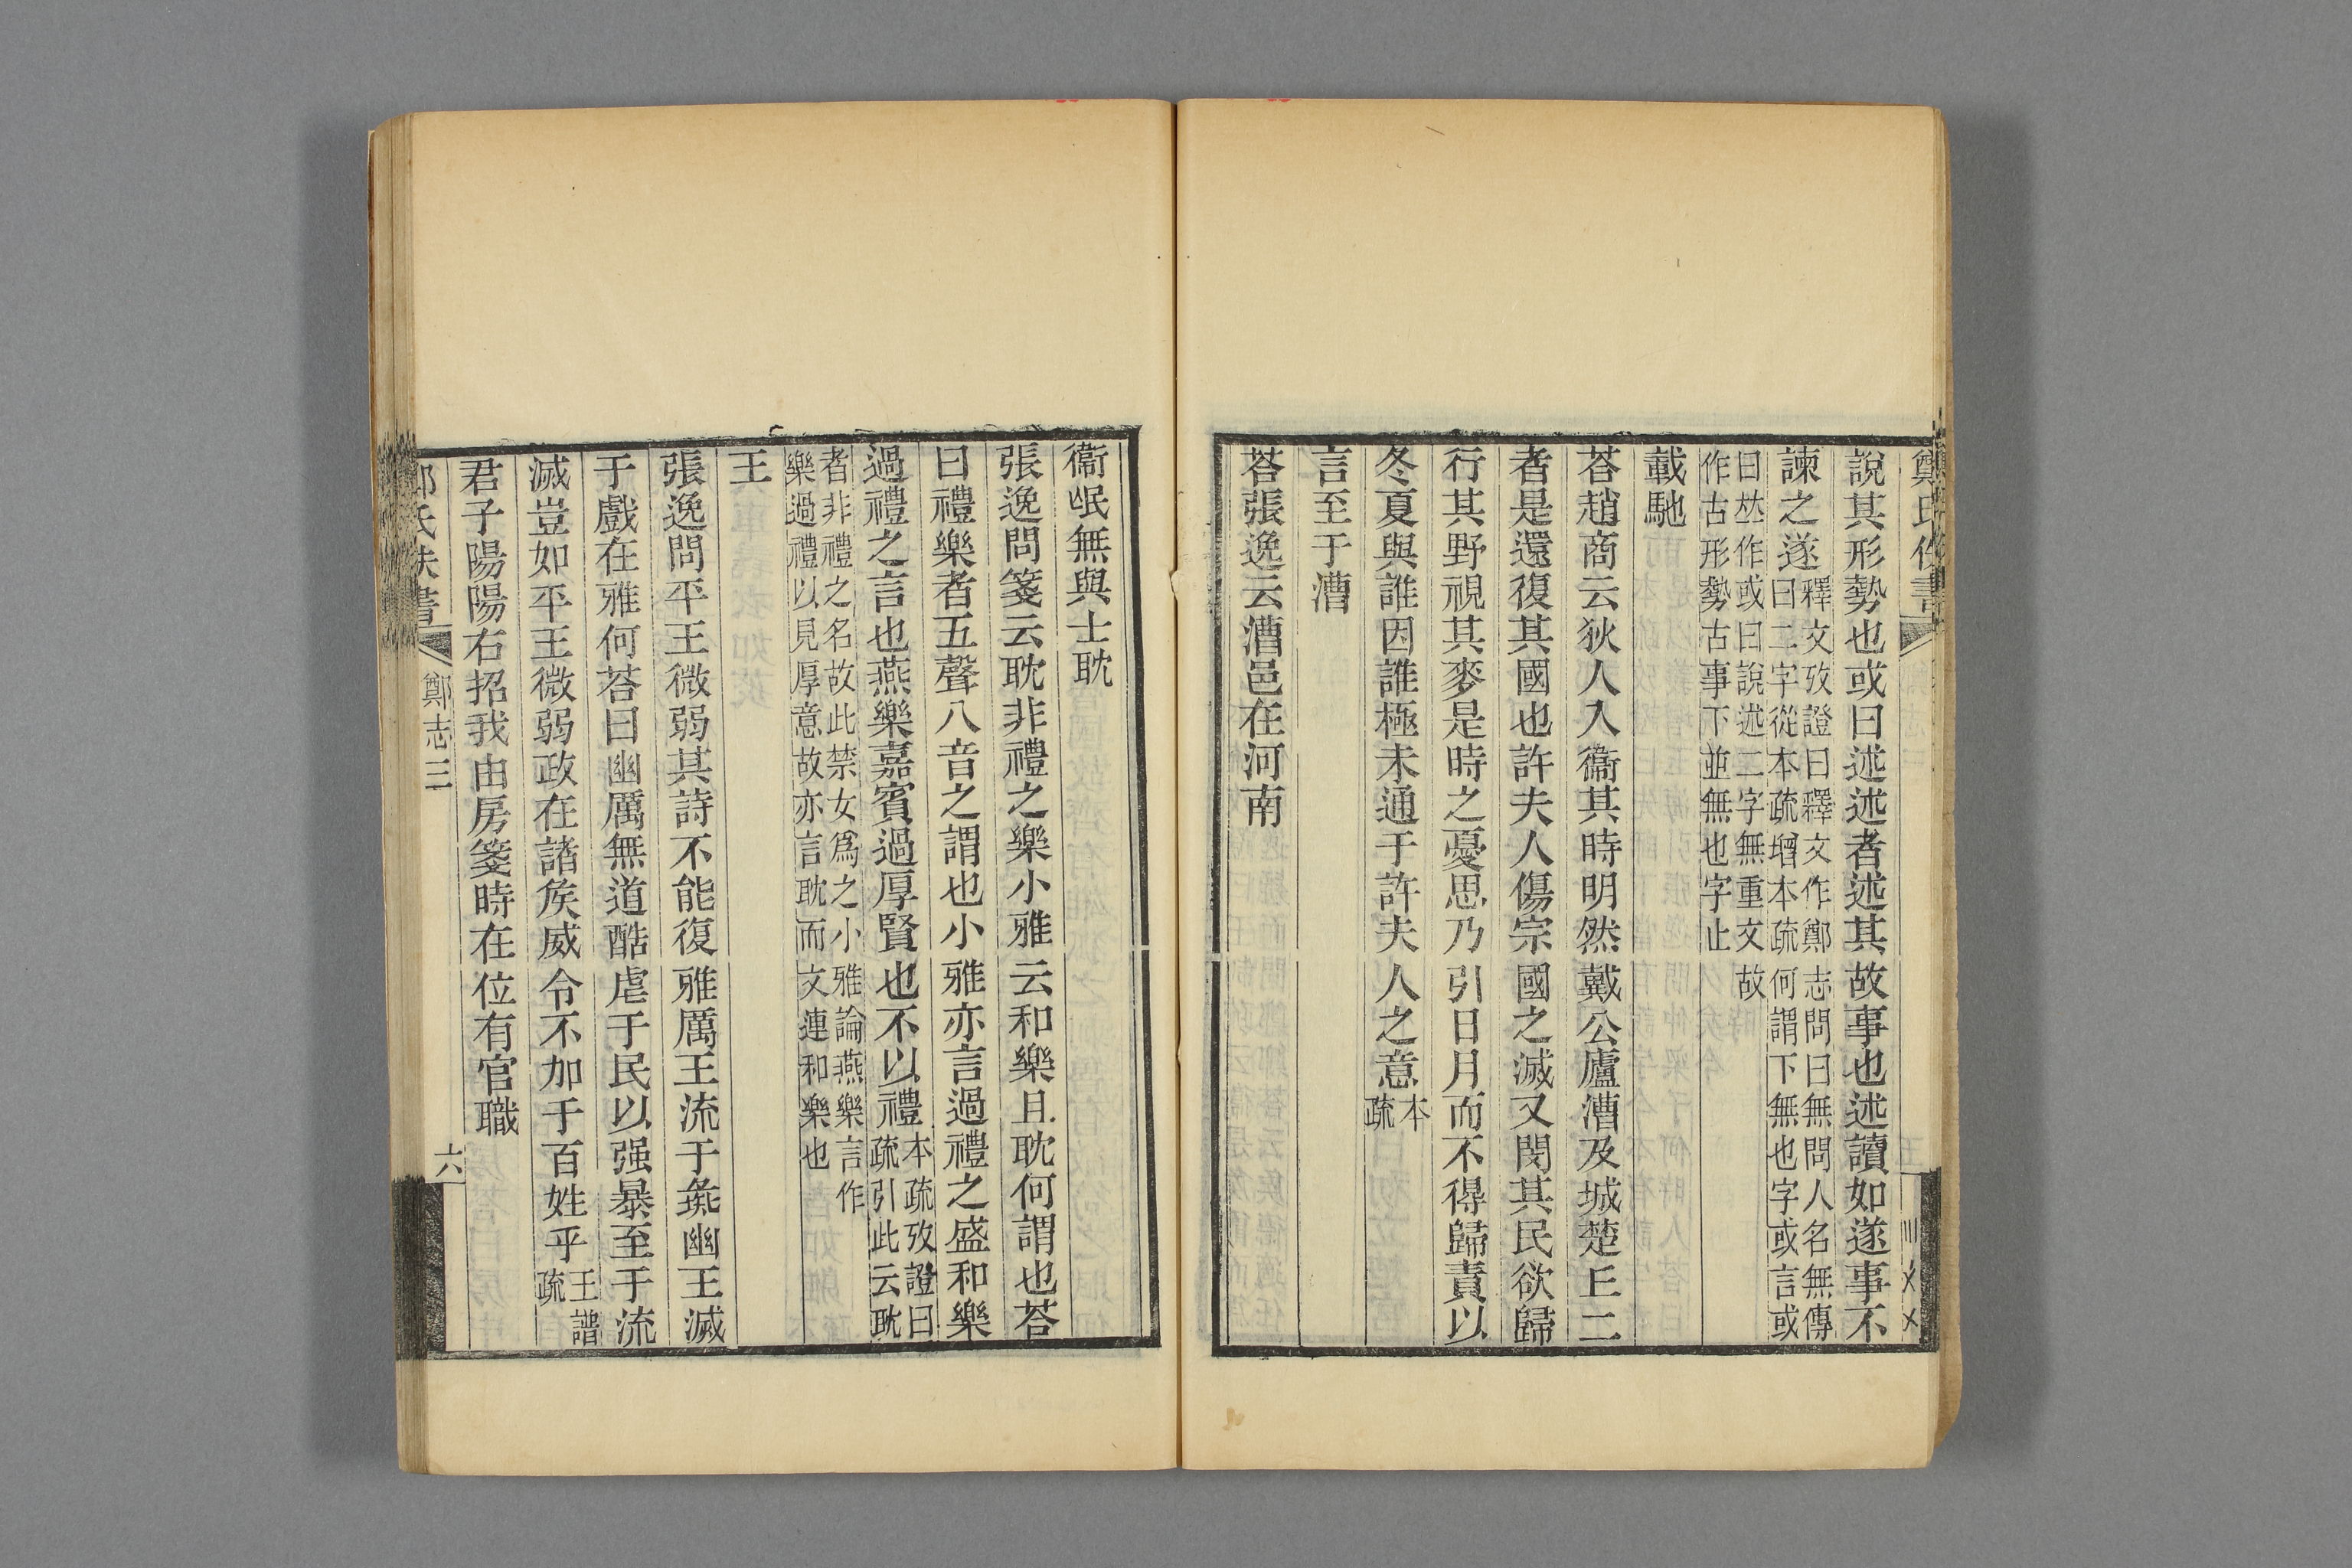 說其形勢也或曰述述者述其故事也述讀如遂事不
諫之遂釋文攷證曰釋文作鄭志問曰無問人名無傳
曰二字從本疏增本疏何謂下無也字或言或
曰竝作或曰說述二字無重文故
作古形勢古事下並無也字止
載馳
荅趙商云狄人入衞其時明然戴公廬漕及城楚丘二
者是還復其國也許夫人傷宗國之滅又閔其民欲歸
行其野視其麥是時之憂思乃引日月而不得歸責以
冬夏與誰因誰極未通于許夫人之意本
疏
言至于漕
荅張逸云漕邑在河南
衞氓無與士耽
張逸問箋云耽非禮之樂小雅云和樂且耽何謂也荅
曰禮樂者五聲八音之謂也小雅亦言過禮之盛和樂
過禮之言也燕樂嘉賓過厚賢也不以禮本疏攷證曰
疏引此云耽
者非禮之名故此禁女爲之小雅論燕樂言作
樂過禮以見厚意故亦言耽而文連和樂也
王
張逸問平王微弱其詩不能復雅厲王流于彘幽王滅
于戲在雅何荅曰幽厲無道酷虐于民以强暴至于流
滅豈如平王微弱政在諸矦威令不加于百姓乎王譜
疏
君子陽陽右招我由房箋時在位有官職
氏佚書 鄭志三 六